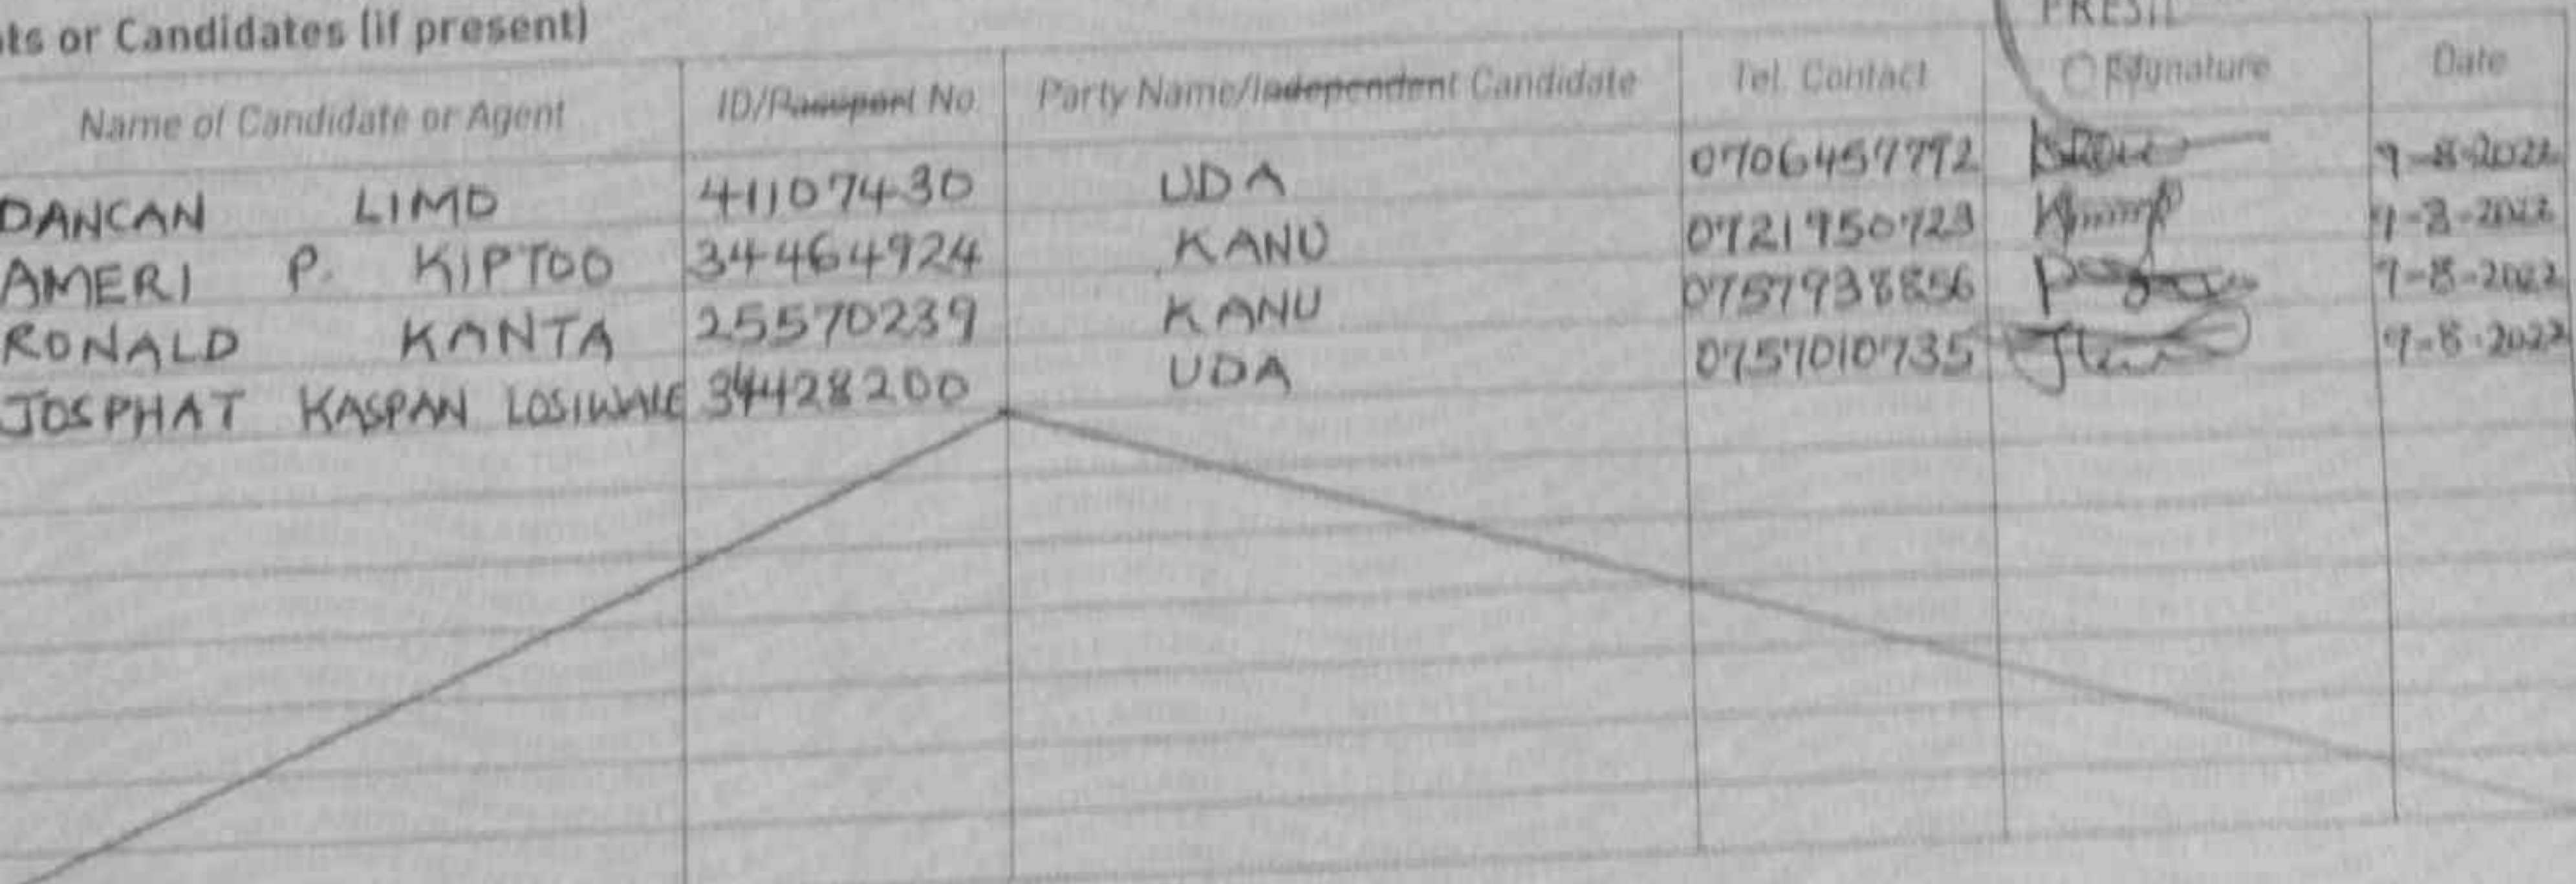 ts or Candidates (if present)
PRESI
Name of Candidate or Agent ID/Passport No. Party Name/Independent Candidate Tel. Contact Signature Date
DANCAN LIMO 41107430 UDA 0706457792 9-8-2022
AMERI P. KIPTOO 34464924 KANU 0721950723 9-8-2022
RONALD KANTA 25570239 KANU 0757938856 9-8-2022
JOSPHAT KASPAN LOSIWALE 34428200 UDA 0757010735 9-8-2022